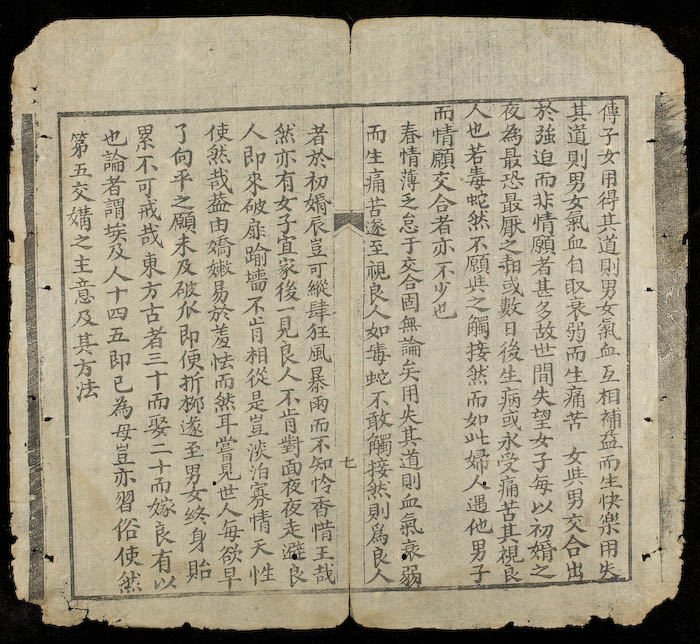 傳子女用得其道則男女氣血互相補益而生快樂用失
其道則男女氣血自取衰弱而生痛苦　女與男交合出
於強迫而非情願者甚多故世間失望女子每以初婚之
夜為最恐最厭之起或數日後生病或永受痛苦其視良
人也若毒蛇然不願與之觸接然而如此婦人遇他男子
而情願交合者亦不少也
春情薄乏怠于交合固無論矣用失其道則血氣衰弱
而生痛苦遂至視良人如毒蛇不敢觸接然則為良人
七
者於初婚辰豈可縱肆狂風暴雨而不知怜香惜玉哉
然亦有女子宜家後一見良人不肯對面夜夜走避良
人即來破扉踰墻不肯相從是豈淡泊寡情天性
使然哉蓋由嬌嫩易於羞怯而然耳嘗見世人每欲早
了向平之願未及破瓜即使折柳遂至男女終身貽
累不可戒哉東方古者三十而娶二十而嫁良有以
也論者謂埃及人十四五即已為母豈亦習俗使然
第五交媾之主意及其方法